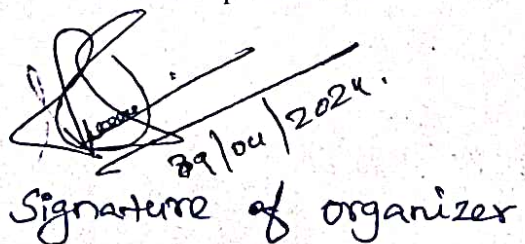 29/04/2024.
Signature of organizer